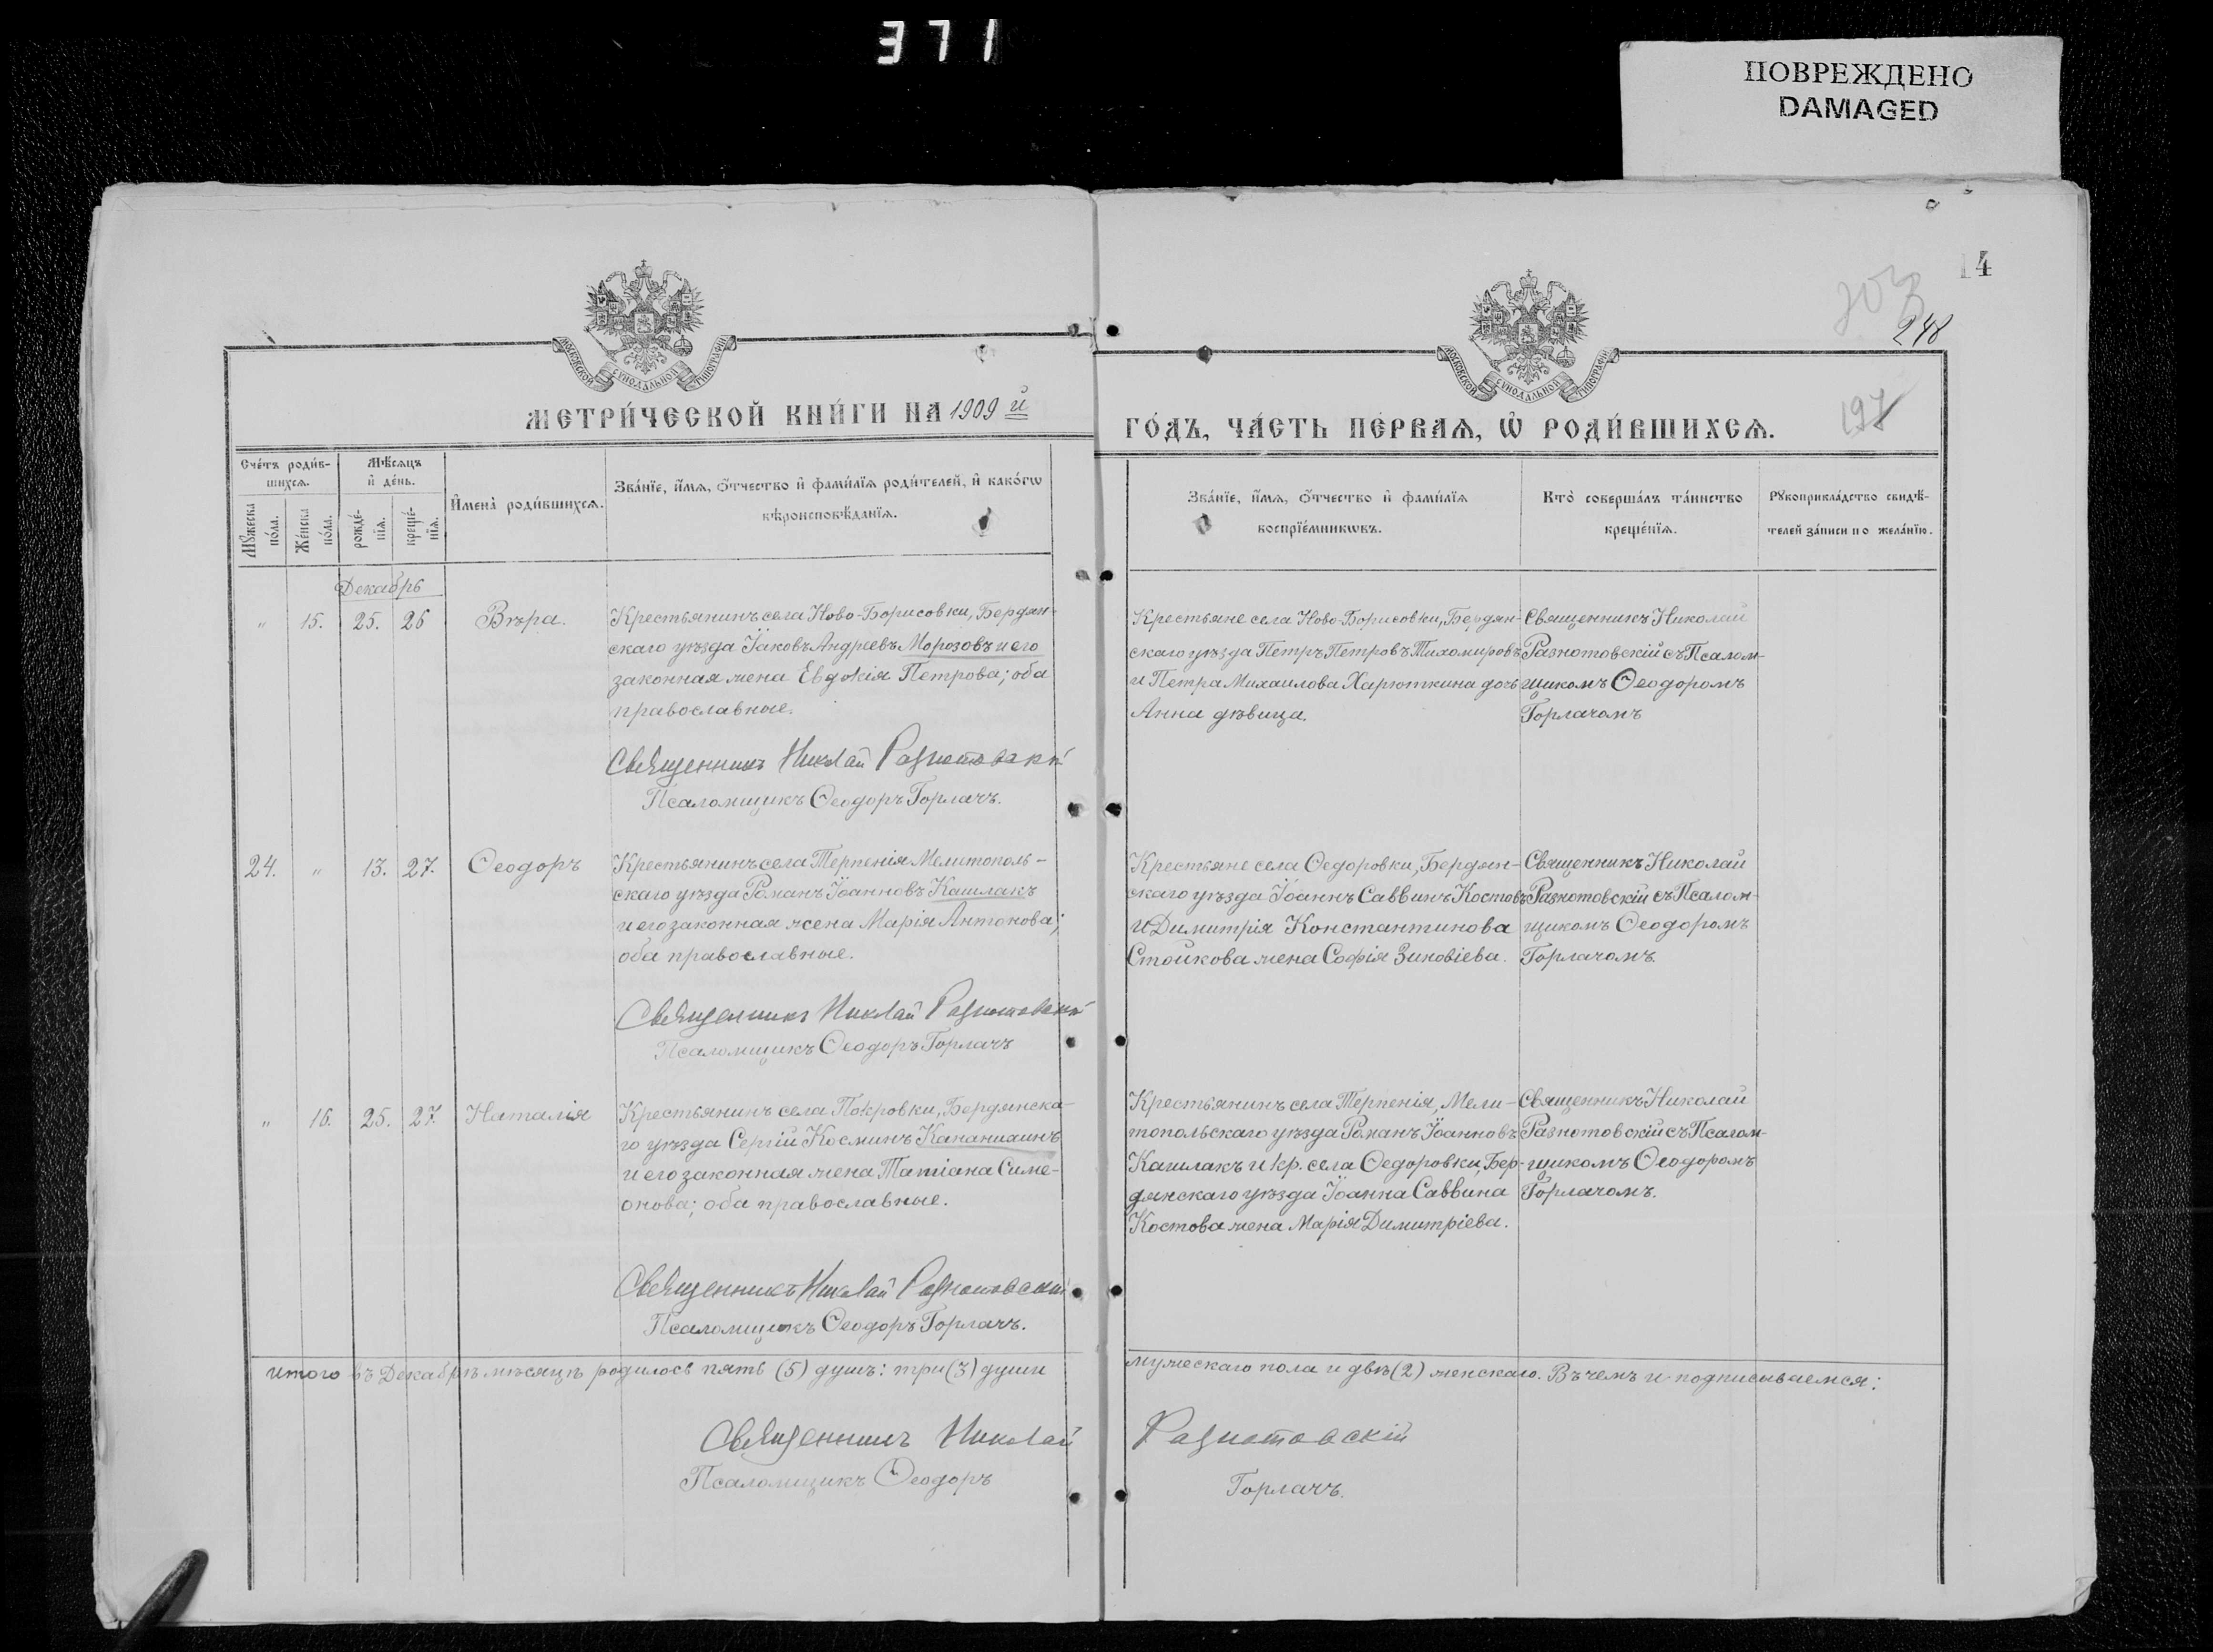 371
ПОВРЕЖДЕНО
DAMAGED
14
248
197
МОСКОВСКОЙ СѴНОДАЛЬНОЙ ТИПОГРАФІИ
МОСКОВСКОЙ СѴНОДАЛЬНОЙ ТИПОГРАФІИ
МЕТРИ́ЧЕСКОЙ КНИ́ГИ НА 1909 й
ГО́ДЪ, ЧА́СТЬ ПЕ́РВАѦ, Ѡ҆ РОДИ́ВШИХСѦ.
Сче́тъ роди́в-
шихсѧ.
Мѣ́сѧцъ
и҆ де́нь.
Мꙋ́жеска
по́ла.
Же́нска
по́ла.
рожде́-
нїѧ.
креще́-
нїѧ.
И҆мена̀ роди́вшихсѧ.
Зва́нїе, и҆́мѧ, ѻ҆́тчество и҆ фами́лїѧ роди́телей, и҆ како́гѡ
вѣроисповѣ́данїѧ.
Зва́нїе, и҆́мѧ, ѻ҆́тчество и҆ фами́лїѧ
воспрїе́мникѡвъ.
Кто̀ соверша́лъ та́инство
креще́нїѧ.
Рꙋкоприкла́дство свидѣ́-
телей за́писи по жела́нїю.
Декабрь
" 15. 25. 26 Вѣра.
Крестьянинъ села Ново-Борисовки, Бердян-
скаго уѣзда Іаковъ Андреевъ Морозовъ и его
законная жена Евдокія Петрова; оба
православные.
Священникъ Николай Разнотовскій
Псаломщикъ Ѳеодоръ Горлачъ.
Крестьяне села Ново-Борисовки, Бердян-
скаго уѣзда Петръ Петровъ Тихомировъ
и Петра Михаилова Харюткина дочь
Анна дѣвица.
Священникъ Николай
Разнотовскій съ Псалом-
щикомъ Ѳеодоромъ
Горлачомъ
24. " 13. 27. Ѳеодоръ
Крестьянинъ села Терпенія Мелитополь-
скаго уѣзда Романъ Іоанновъ Кашлакъ
и его законная жена Марія Антонова;
оба православные.
Священникъ Николай Разнотовскій
Псаломщикъ Ѳеодоръ Горлачъ
Крестьяне села Ѳедоровки, Бердян-
скаго уѣзда Іоаннъ Саввинъ Костовъ
и Димитрія Константинова
Стойкова жена Софія Зиновіева.
Священникъ Николай
Разнотовскій съ Псалом-
щикомъ Ѳеодоромъ
Горлачомъ.
" 16. 25. 27. Наталія
Крестьянинъ села Покровки, Бердянска-
го уѣзда Сергій Косминъ Кананихинъ
и его законная жена Татіана Симе-
онова; оба православные.
Священникъ Николай Разнотовскій
Псаломщикъ Ѳеодоръ Горлачъ.
Крестьянинъ села Терпенія, Мели-
топольскаго уѣзда Романъ Іоанновъ
Кашлакъ и кр. села Ѳедоровки, Бер-
дянскаго уѣзда Іоанна Саввина
Костова жена Марія Димитріева.
Священникъ Николай
Разнотовскій съ Псалом-
щикомъ Ѳеодоромъ
Горлачомъ.
итого въ Декабрѣ мѣсяцѣ родилось пять (5) душъ: три (3) души
мужескаго пола и двѣ (2) женскаго. Въ чемъ и подписываемся:
Священникъ Николай Разнотовскій
Псаломщикъ Ѳеодоръ Горлачъ.